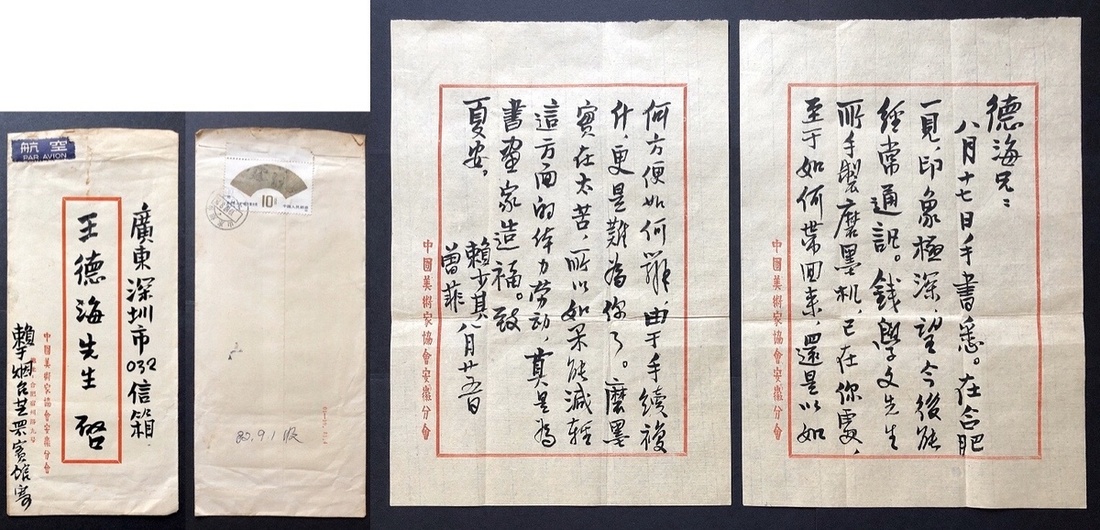 航空
PAR AVION
廣東深圳市032信箱
王德海先生 啓
中國美術家協會安徽分會
賴 于烟台芝罘賓館寄
10分
中国人民邮政
9.1收
德海兄：
八月十七日手書悉。在合肥
一見，印象極深，望今後能
經常通訊。錢學文先生
所手製磨墨机，已在你處，
至于如何帶回来，還是以如
中國美術家協會安徽分會
何方便如何辦，由于手續複
什，更是難為你了。磨墨
實在太苦，所以如果能減輕
這方面的体力勞动，真是為
書画家造福。致
夏安。
賴少其 八月廿五日
曾菲
中國美術家協會安徽分會